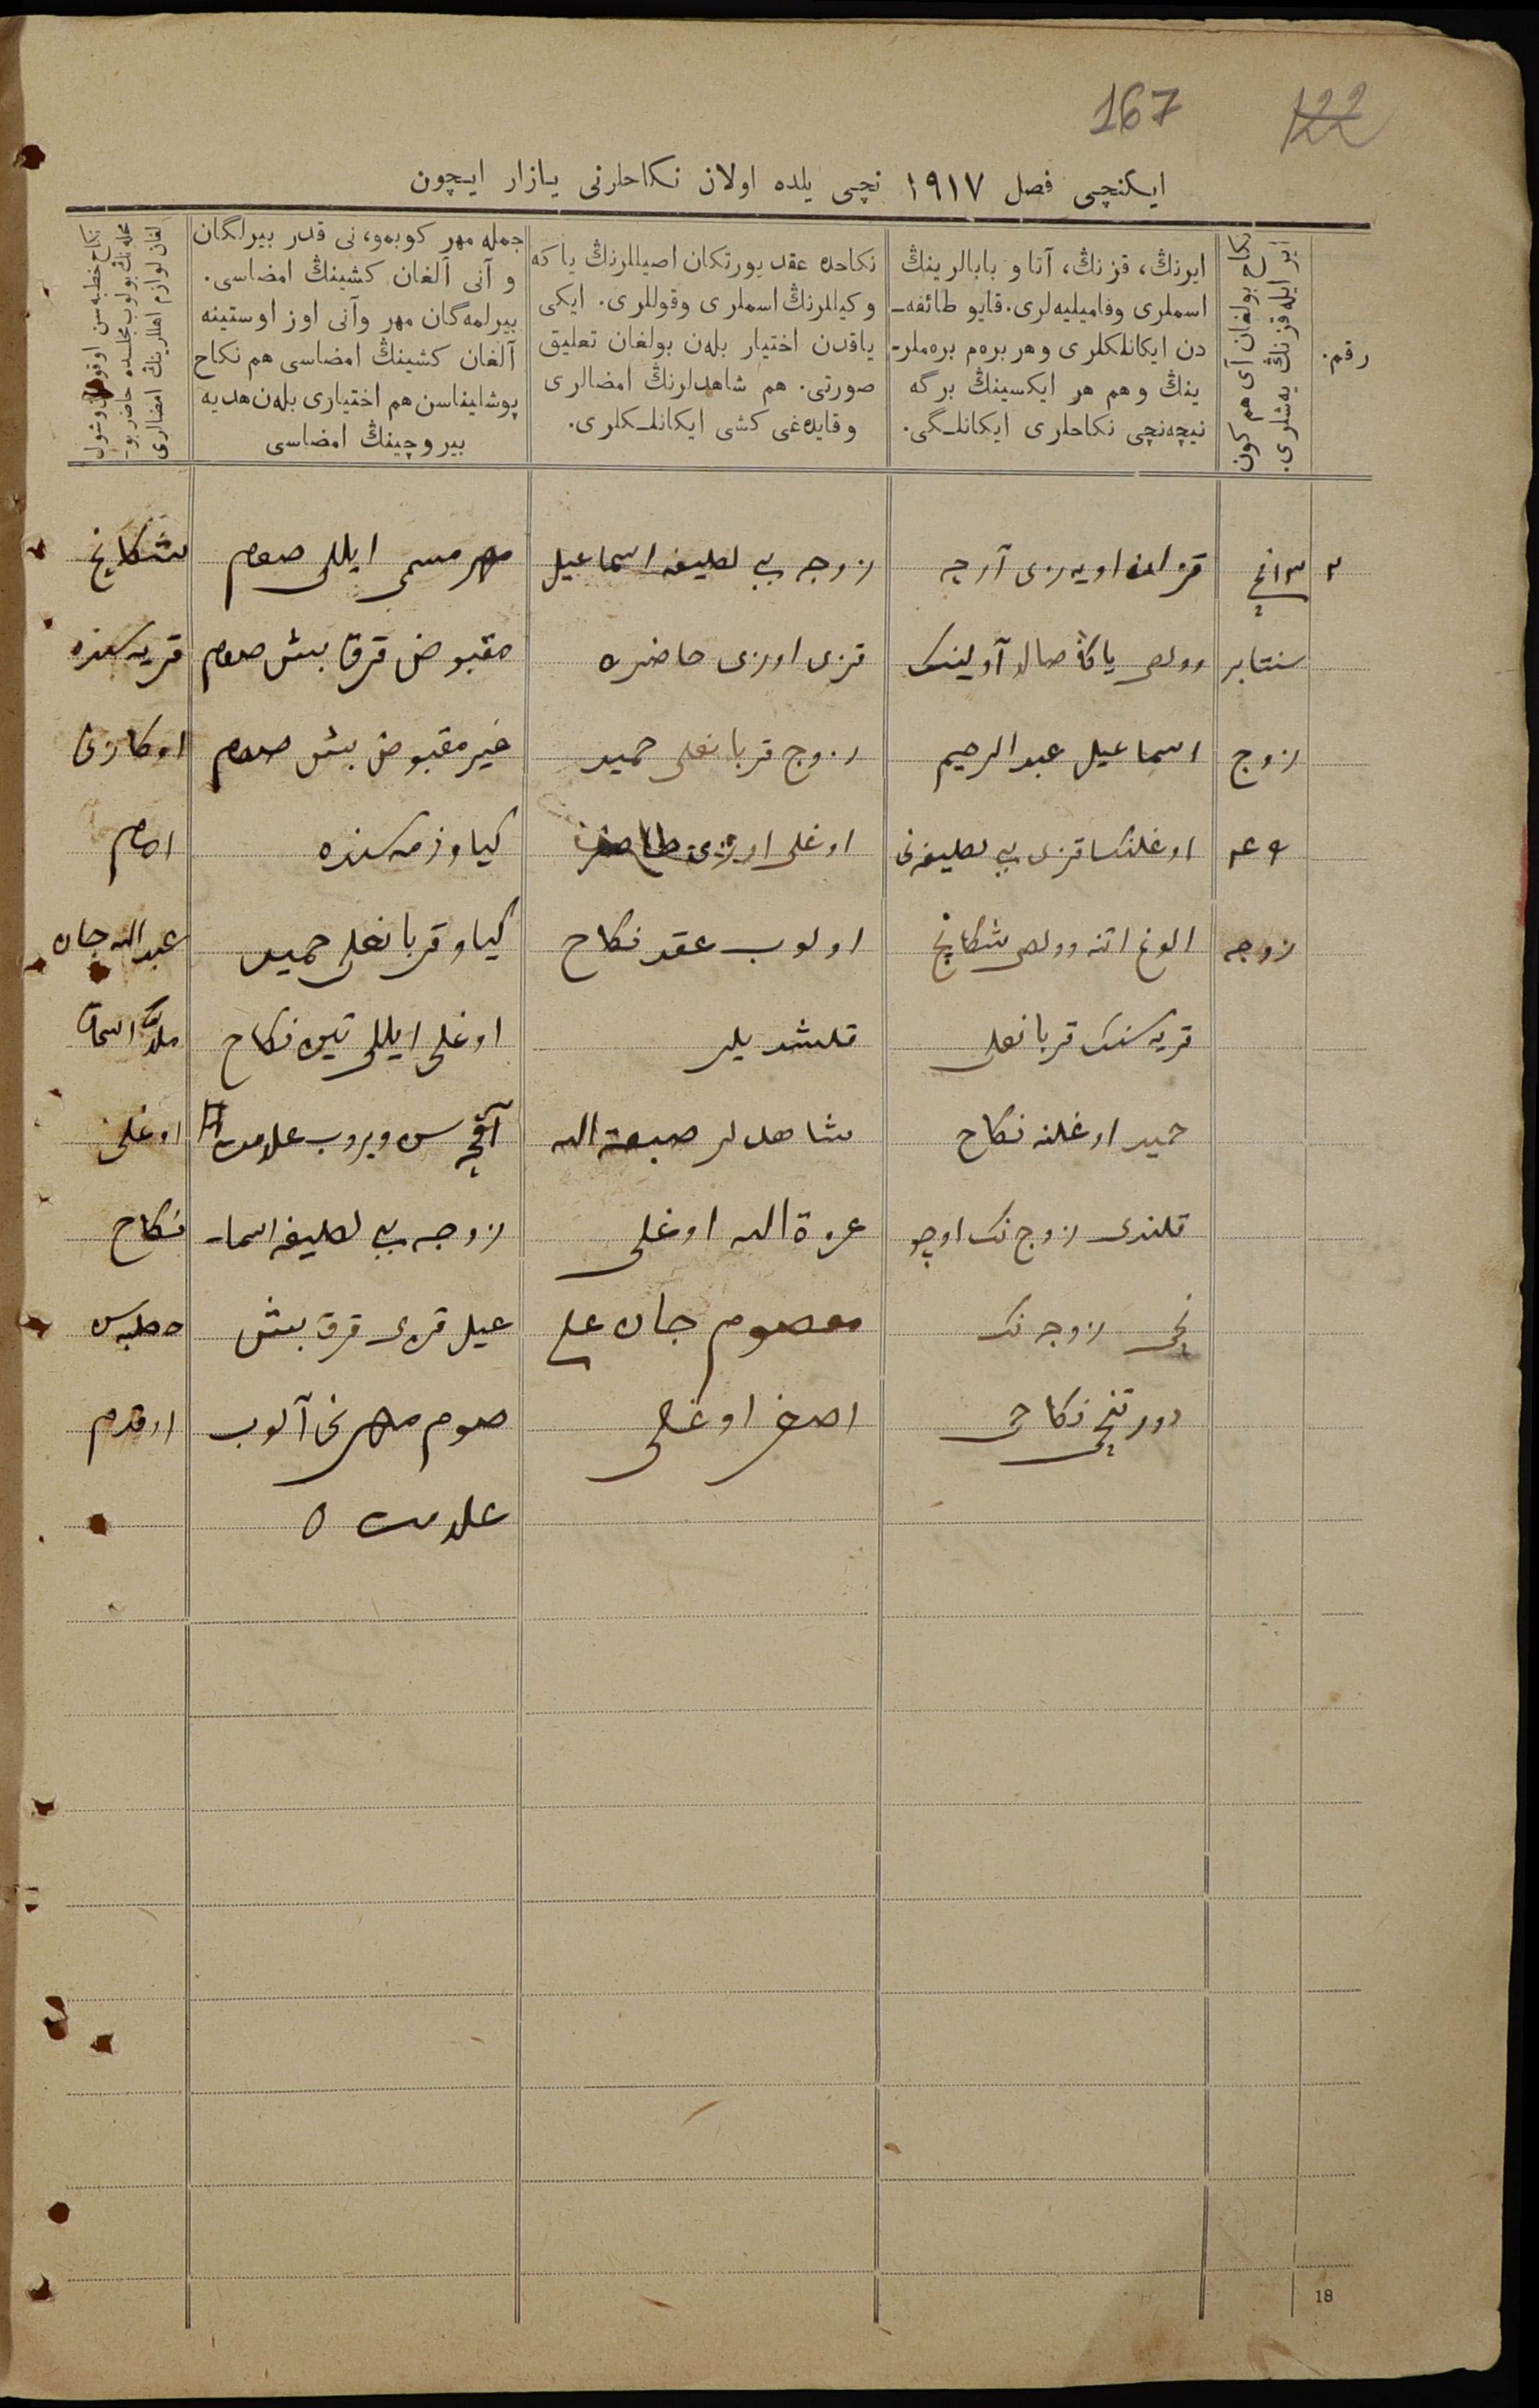 167
122
ایكنچی فصل ۱۹۱۷ نچی یلده اولان نكاحلرنی یازار ایچون
رقم.
نكاح بولغان آی هم كون
ایر ایله قزنڭ یه‌شلری.
ایرنڭ، قزنڭ، آتا و بابالرینڭ
اسملری وفامیلیه‌لری. قایو طائفه‌ـ
دن ایكانلكلری وهر بره‌م بره‌ملرـ
ینڭ وهم هر ایكسینڭ برگه
نیچه‌نچی نكاحلری ایكانلـگی.
نكاحده عقد یورتكان اصیللرنڭ یا كه
وكیللرنڭ اسملری وقوللری. ایكی
یاقدن اختیار بله‌ن بولغان تعلیق
صورتی. هم شاهدلرنڭ امضالری
وقایده‌غی كشی ایكانلـكلری.
جمله مهر كوبمو، نی قدر بیرلگان
و آنی آلغان كشینڭ امضاسی.
بیرلمه‌گان مهر وآنی اوز اوستینه
آلغان كشینڭ امضاسی هم نكاح
پوشلیناسن هم اختیاری بله‌ن هدیه
بیروچینڭ امضاسی
نكاح خطبه‌سن اوقو وشول
محله‌نڭ بولوب مجلسده حاضر بوـ
لغان لوازم اهللرینڭ امضالری
۲
۱۳ نچی
سنتابر
زوج
۴۹
زوجه
قزان اویه‌زی آرجه
وولصی یاڭا صالا آولینڭ
اسماعیل عبدالرحیم
اوغلینڭ قزی بی‌بی لطیفه‌نی
الوغ اتنه وولصی شكانچی
قریه‌سنڭ قربانعلی
حمید اوغلنه نكاح
قلندی زوج‌نڭ اوچو
نچی زوجه‌نڭ
دورتنچی نكاحی
زوجه بی‌بی لطیفه اسماعیل
قزی اوزی حاضره
زوج قربانعلی حمید
اوغلی اوزی حاضر
اولوب عقد نكاح
قلشدیلر
شاهدلر صبغة الله
عزة الله اوغلی
معصوم جان علی
اصغر اوغلی
مهر مسمی ایللی صوم
مقبوض قرق بیش صوم
غیر مقبوض بیش صوم
كیاو ذمه‌سنده
كیاو قربانعلی حمید
اوغلی ایللی تین نكاح
آقچه‌سن ویروب علامت
زوجه بی‌بی لطیفه اسماـ
عیل قزی قرق بیش
صوم مهرنی آلوب
علامت ٥
شكانچی
قریه‌سنده
امام
عبدالله جان
ملا اسحاق
اوغلی
نكاح
خطبه‌سن
اوقدم
18